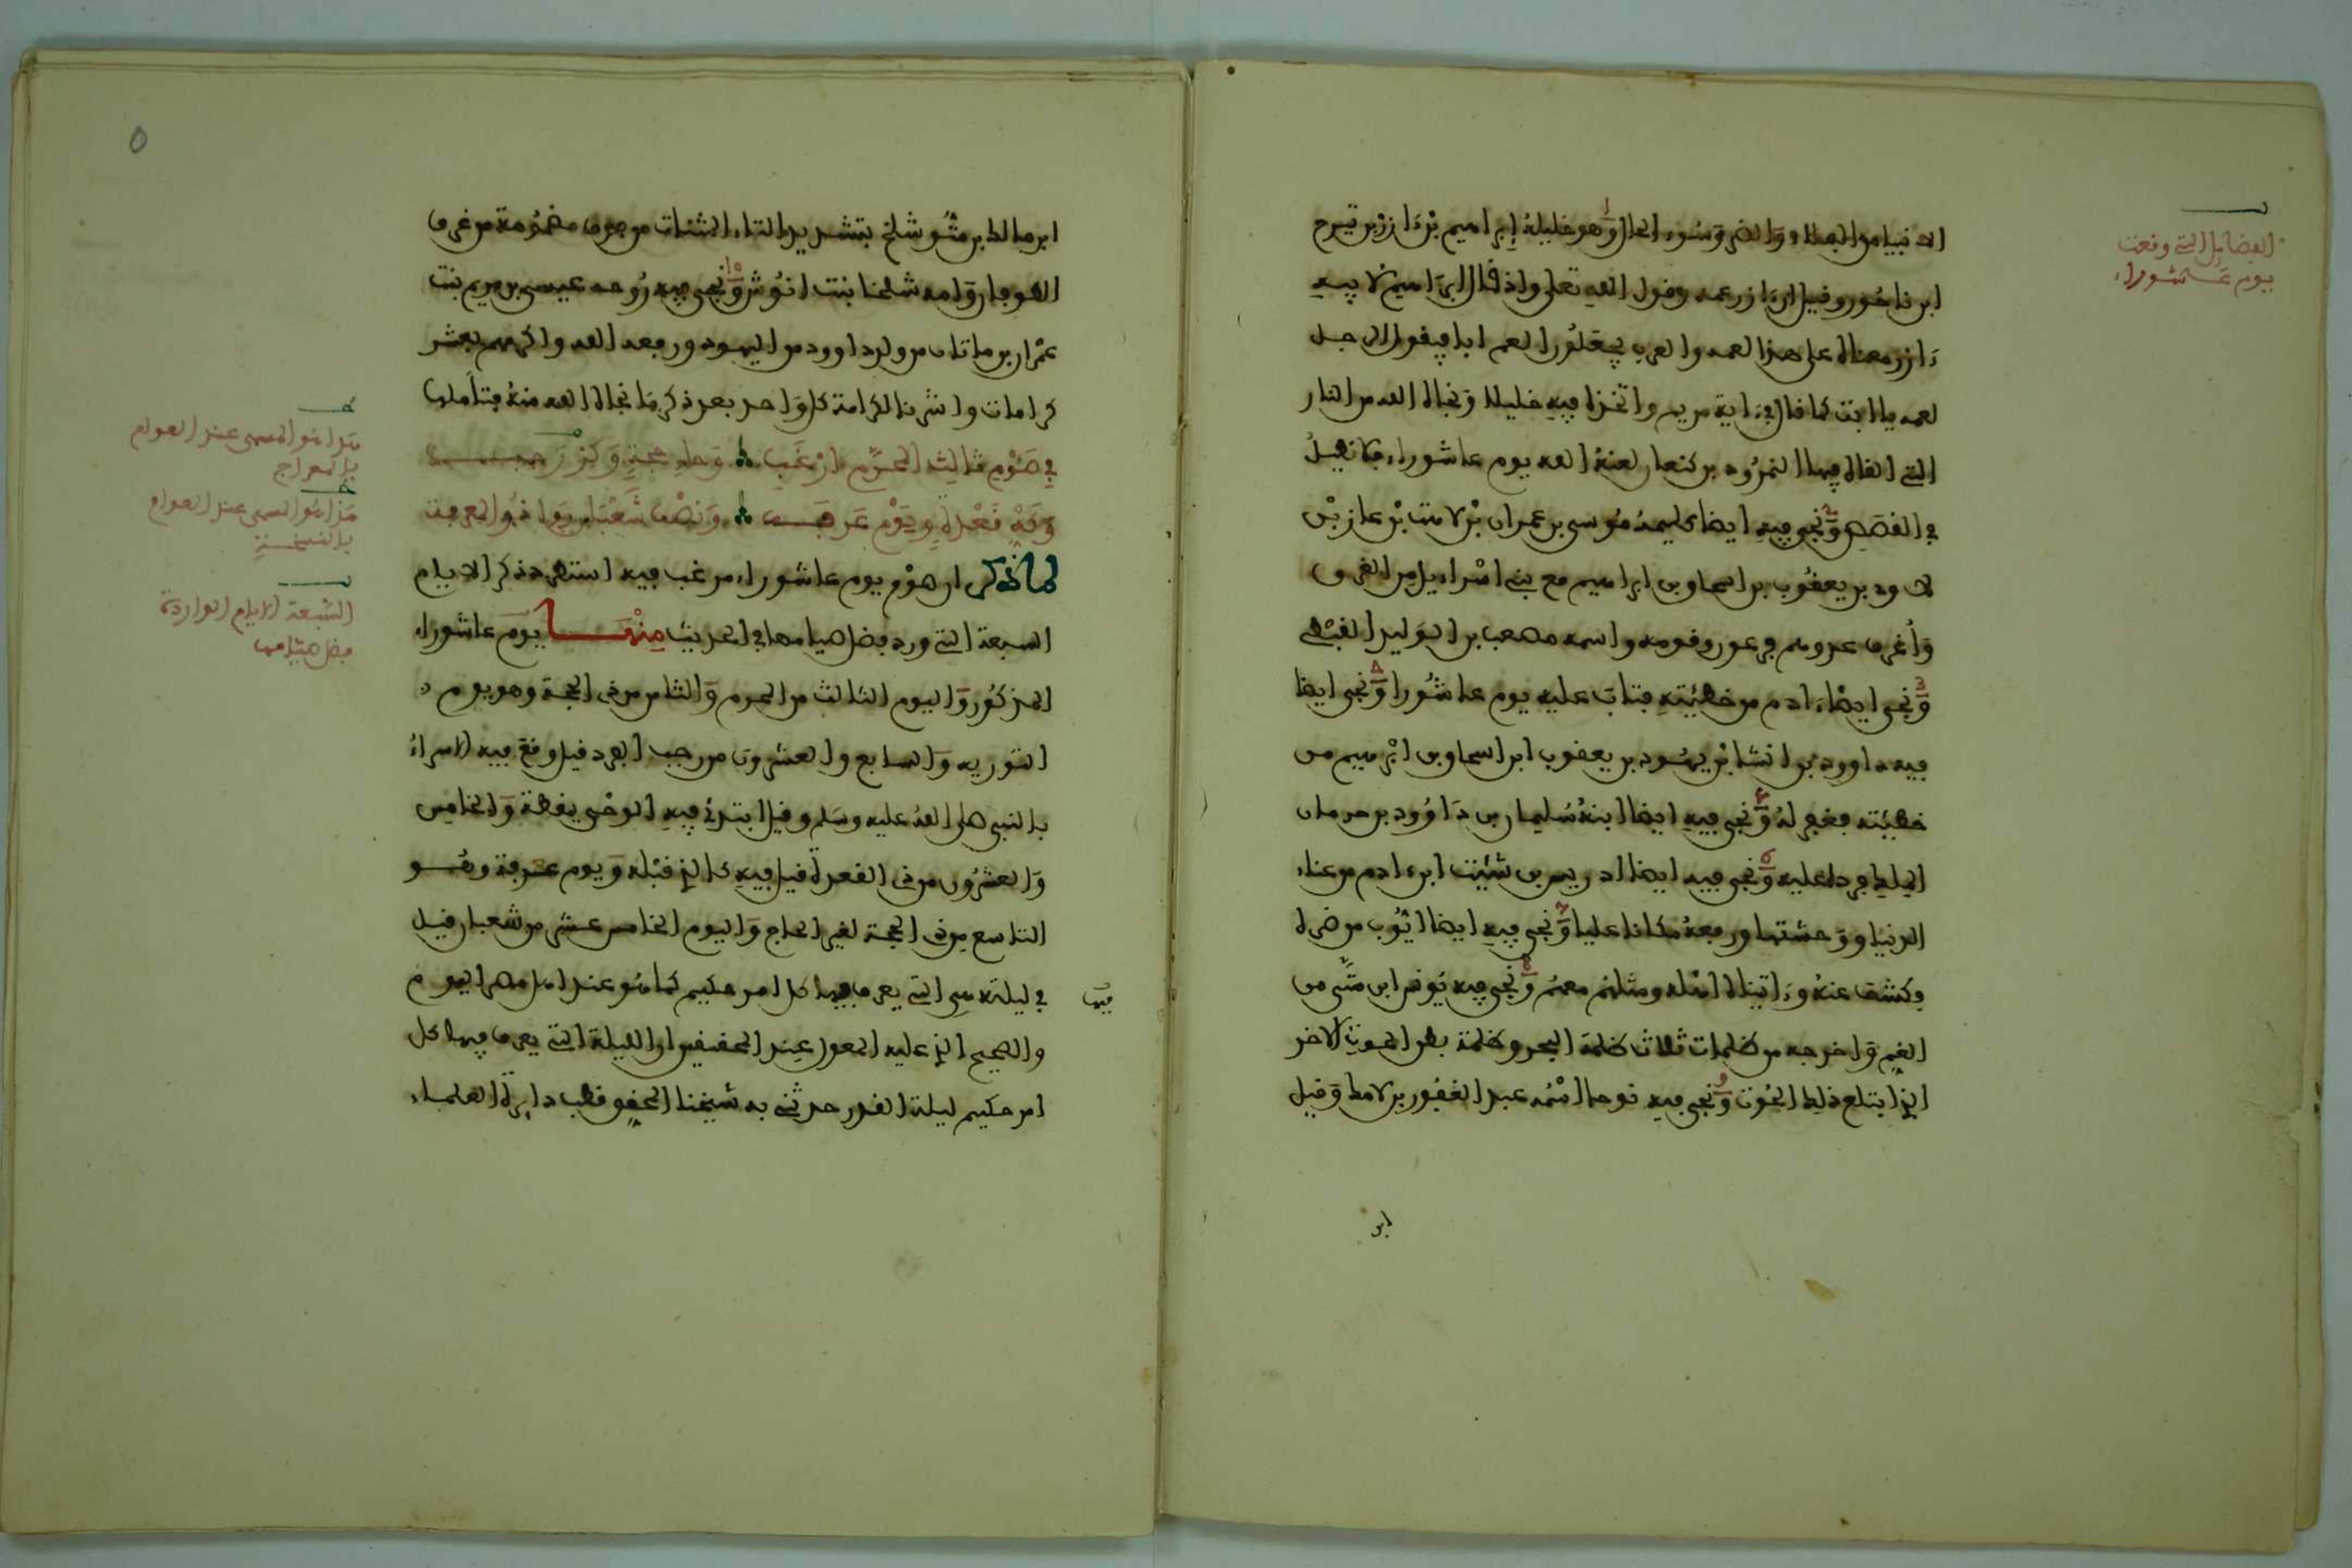 الفضايل التي وقعت
يوم عاشوراء
الانبياء من البلاء والضر وسوء الحال وهو خليله إبراهيم بن ءازر بن تيرح
ابن ناخور وقيل ان ءازر عمه وقول الله تعلى واذ قال ابراهيم لابيه
ءازر معناه على هذا لعمه والعرب يجعلون العم ابا فيقول الرجل
لعمه يا ابت كما قال في ءاية مريم واتخذ فيه خليلا ونجاه الله من النار
التي القاه فيها النمرود بن كنعان لعنه الله يوم عاشوراء
في القصص ونجى فيه ايضا كليمه موسى بن عمران بن لامت بن عازر بن
لاود بن يعقوب بن اسحاق بن ابراهيم مع بني اسراءيل من الغرق
وأغرق عدوهم فرعون وقومه واسمه مصعب بن الوليد القبطي
ونجى ايضا ءادم من خطيئته فتاب عليه يوم عاشورا ونجى ايضا
فيه داوود بن انشا بن يهود بن يعقوب ابن اسحاق بن ابرهيم من
خطيئته فغفر له ونجى فيه ايضا ابنه سليمان بن داوود من حرمان
الملك فرد عليه ونجى فيه ايضا ادريس بن شئيت ابن ءادم من عناء
الدنيا ووحشتها ورفعه مكانا عليا ونجى فيه ايضا ايوب من ضره
وكشف عنه وءاتيناه اهله ومثلهم معهم ونجى فيه يونس ابن متى من
الغم واخرجه من ظلمات ثلاث ظلمة البحر وظلمة بطن الحوت الاخر
الذي ابتلع ذلك الحوت ونجى فيه نوحا اسمه عبد الغفور بن لامك وقيل
ابن
٥
ابن مالك بن متوشلخ بتشديد التاء المثنات من فوق مضمومة من غرق
الطوفان وامه شلخا بنت انوش ونجى فيه روحه عيسى بن مريم بنت
عمران بن ماتان من ولد داوود من اليهود ورفعه الله واكرمهم بعشر
كرامات واشرنا لكرامة كل واحد بعد ذكر ما نجاه الله منه فتأملها
في صوم ثالث المحرم ارغب وحاء حجة وكز رجب
وكه قعدة ويوم عرفة ونصف شعبان بهاذ المعرفة
لما ذكر ان صوم يوم عاشوراء مرغب فيه استطرد ذكر الايام
السبعة التي ورد فضل صيامها في الحديث منها يوم عاشوراء
المذكور واليوم الثالث من المحرم والثامن من ذي الحجة وهو يوم
التورية والسابع والعشرون من رجب الفرد قيل وقع فيه الاسراء
بالنبي صلى الله عليه وسلم وقيل ابتدئ فيه الوحي يقظة والخامس
والعشرون من ذي القعدة قيل فيه كالذي قبله ويوم عرفة وهو
التاسع من ذي الحجة لغير الحاج واليوم الخامس عشر من شعبان قيل
في ليلته هي التي يعرف فيها كل امر حكيم كما هو عند اهل مصر اليوم
والصحيح الذي عليه المعول عند المحققين ان الليلة التي يعرف فيها كل
امر حكيم ليلة القدر حدثني به شيخنا المحقق قطب دايرة العلماء
هو المسمى عند العوام
بالمعراج
هذا هو المسمى عند العوام
بالنسخة
السبعة الايام الواردة
فضل صيامها